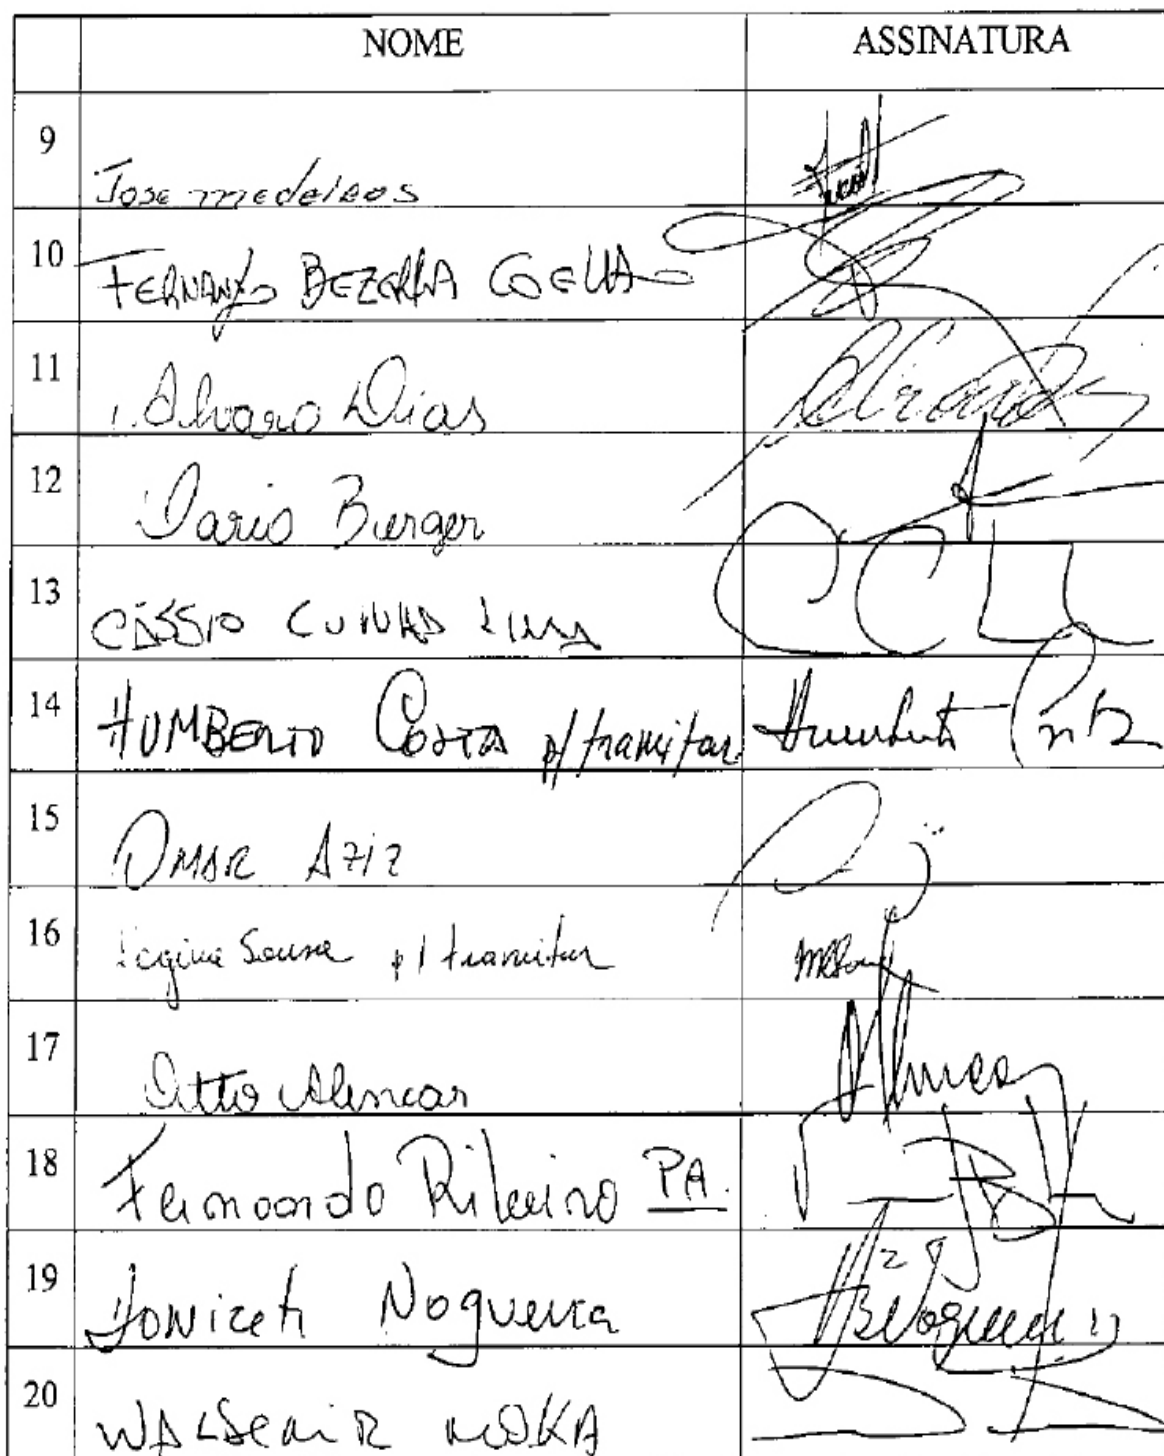 NOME ASSINATURA
9 José medeiros
10 FERNANDO BEZERRA COELHO
11 Alvaro Dias
12 Dario Berger
13 CÁSSIO CUNHA LIMA CCL
14 HUMBERTO COSTA p/ tramitar Humberto Costa
15 OMAR AZIZ
16 Regina Sousa p/ tramitar
17 Otto Alencar
18 Fernando Ribeiro PA.
19 Donizeti Nogueira
20 WALDEMIR MOKA